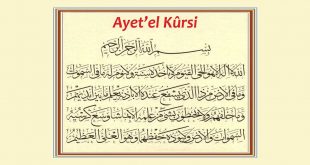 Ayet'el Kûrsi
بِسْمِ اللهِ الرَّحْمٰنِ الرَّحِيمِ
اَللهُ لَا اِلٰهَ اِلَّا هُوَ الْحَيُّ الْقَيُّومُ لَا تَأْخُذُهُ سِنَةٌ وَلَا نَوْمٌ لَهُ مَا فِي السَّمٰوَاتِ
وَمَا فِي الْاَرْضِ مَنْ ذَا الَّذِي يَشْفَعُ عِنْدَهُ اِلَّا بِاِذْنِهِ يَعْلَمُ مَا بَيْنَ اَيْدِيهِمْ
وَمَا خَلْفَهُمْ وَلَا يُحِيطُونَ بِشَيْءٍ مِنْ عِلْمِهِ اِلَّا بِمَا شَاءَ وَسِعَ كُرْسِيُّهُ
السَّمٰوَاتِ وَالْاَرْضَ وَلَا يَؤُدُهُ حِفْظُهُمَا وَهُوَ الْعَلِيُّ الْعَظِيمُ